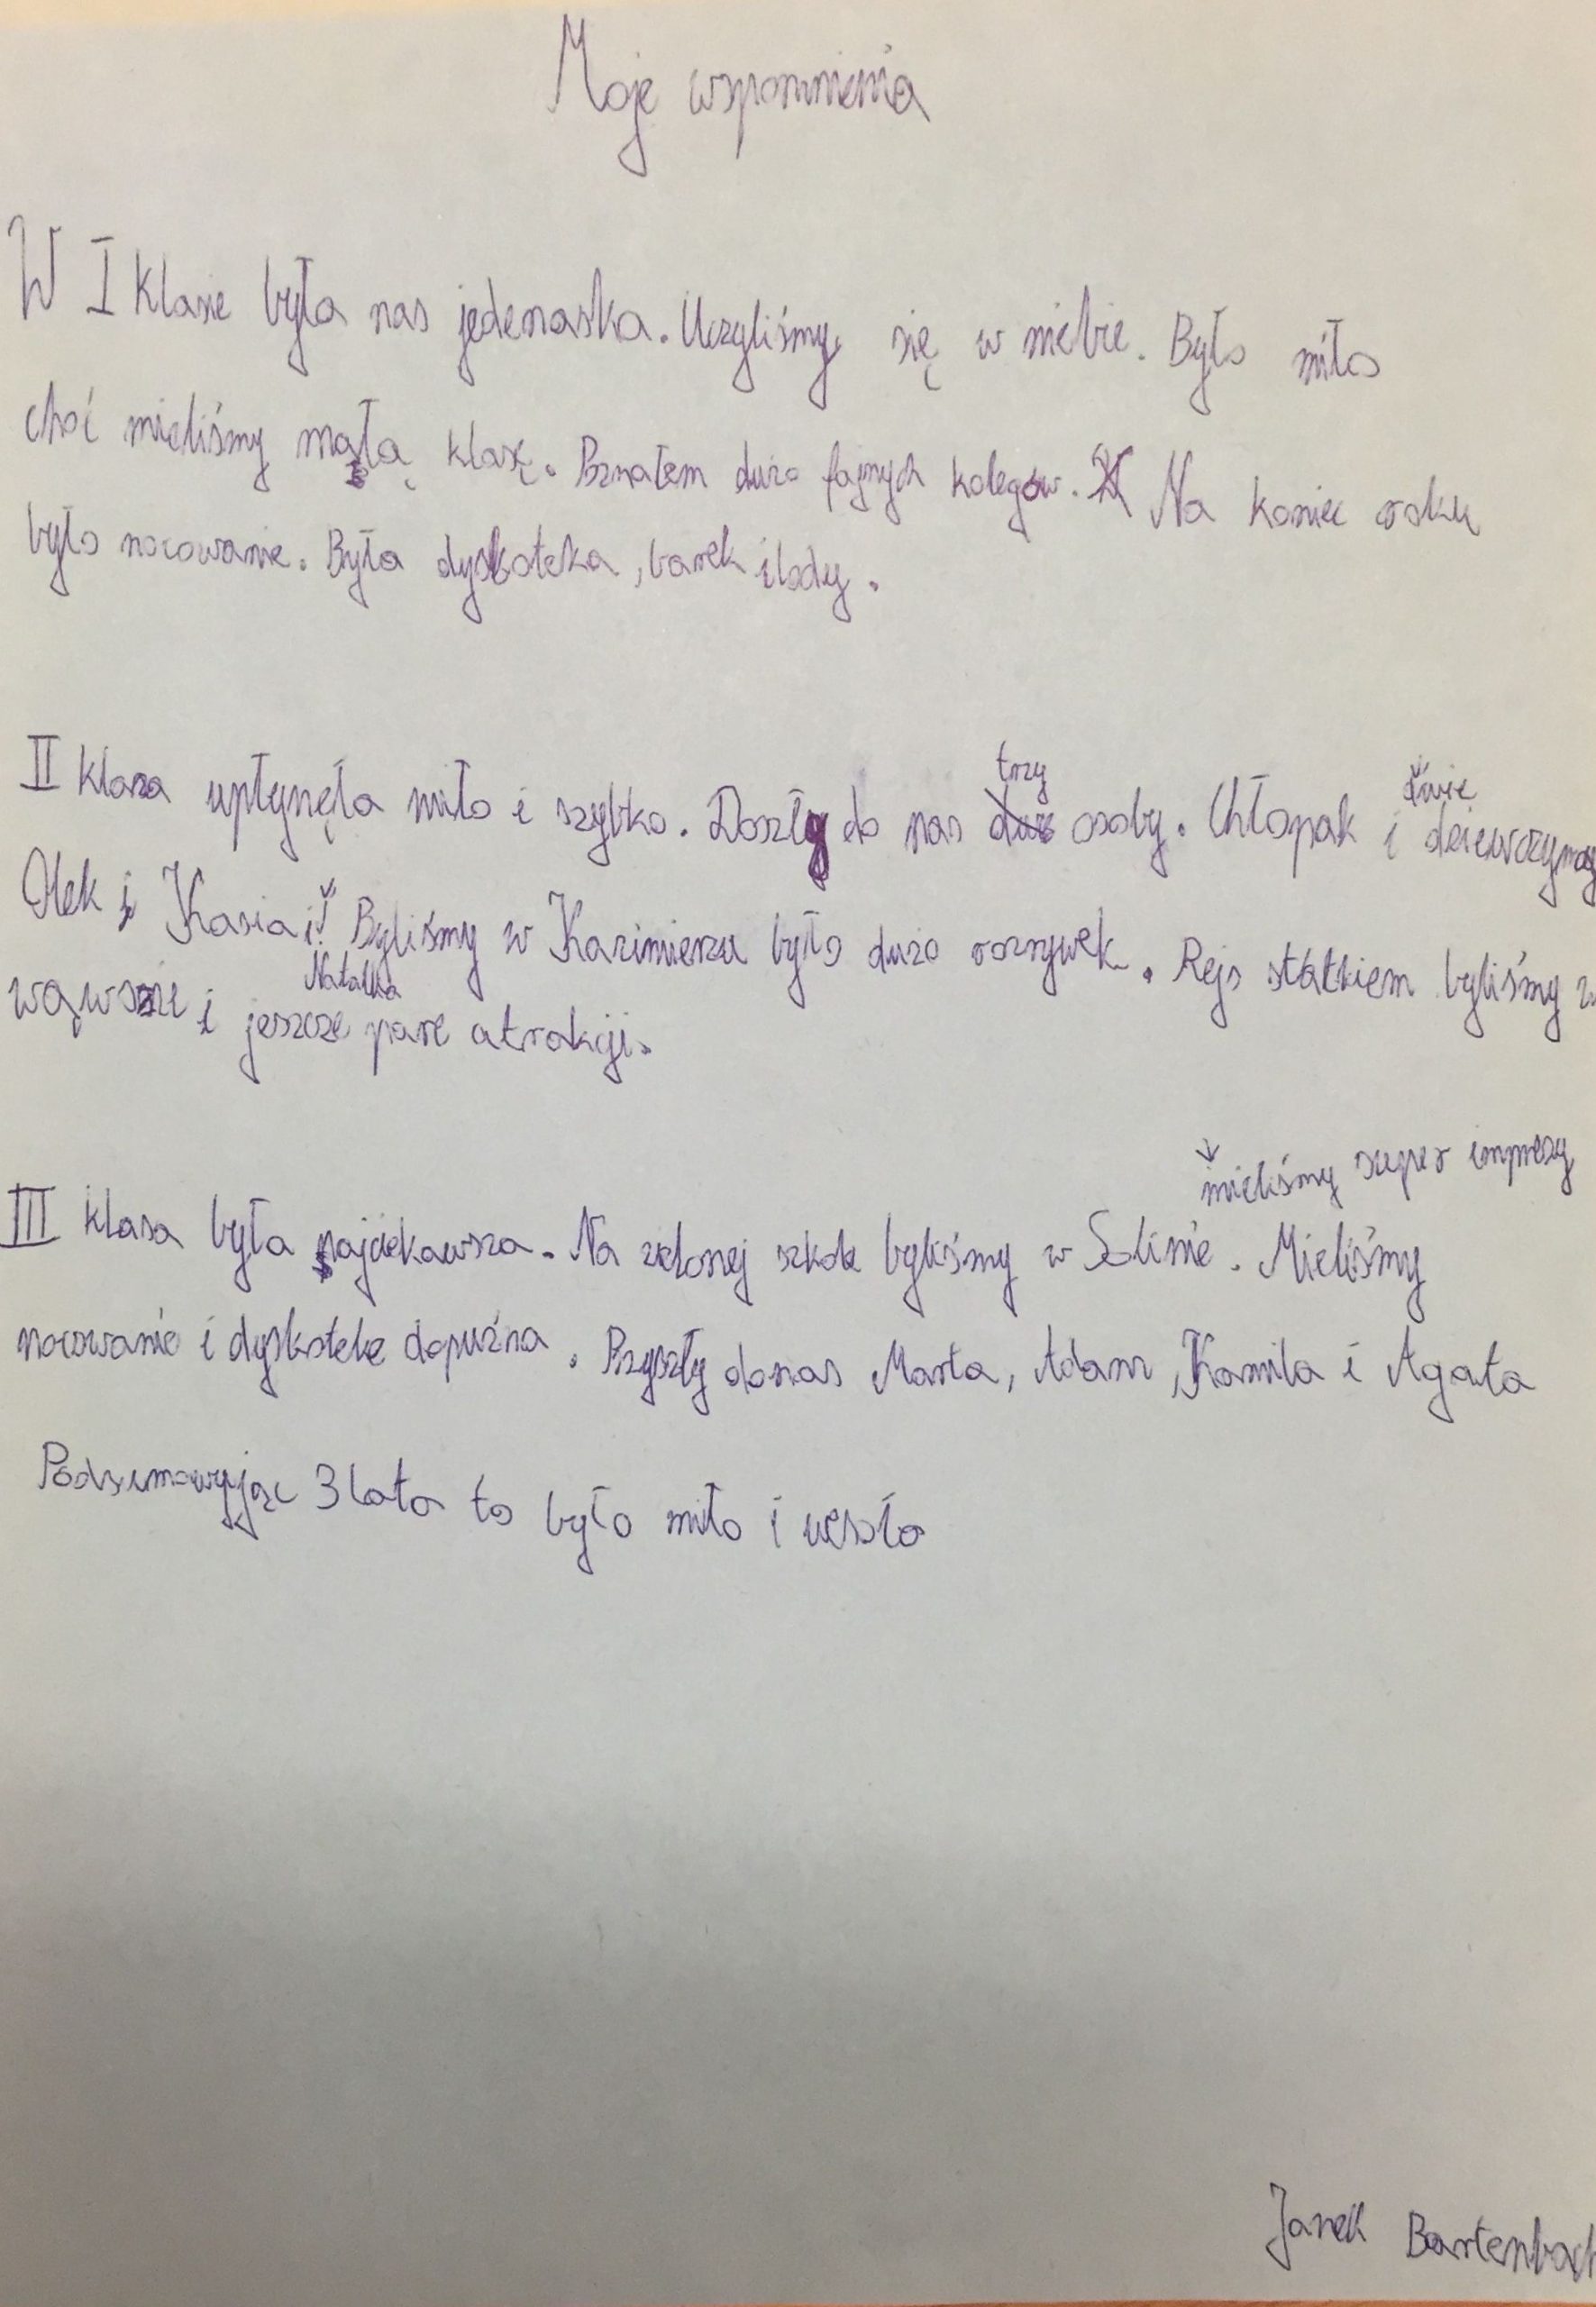 Moje wspomnienia
W I klasie była nas jedenastka. Uczyliśmy się w niebie. Było miło
choć mieliśmy małą klasę. Poznałem dużo fajnych kolegów. Na koniec roku
było nocowanie. Była dyskoteka, barek i lody.
II klasa upłynęła miło i szybko. Doszły do nas trzy osoby. Chłopak i dwie dziewczyny
Olek i Kasia i Natalka. Byliśmy w Kazimierzu było dużo rozrywek. Rejs statkiem byliśmy w
wąwozie i jeszcze pare atrakcji.
mieliśmy super imprezy
III klasa była najciekawsza. Na zielonej szkole byliśmy w Solinie. Mieliśmy
nocowanie i dyskoteke dopuźna. Przyszły donas Marta, Adam, Kamila i Agata
Podsumowyjąc 3 lata to było miło i wesoło
Janek Bartenbach